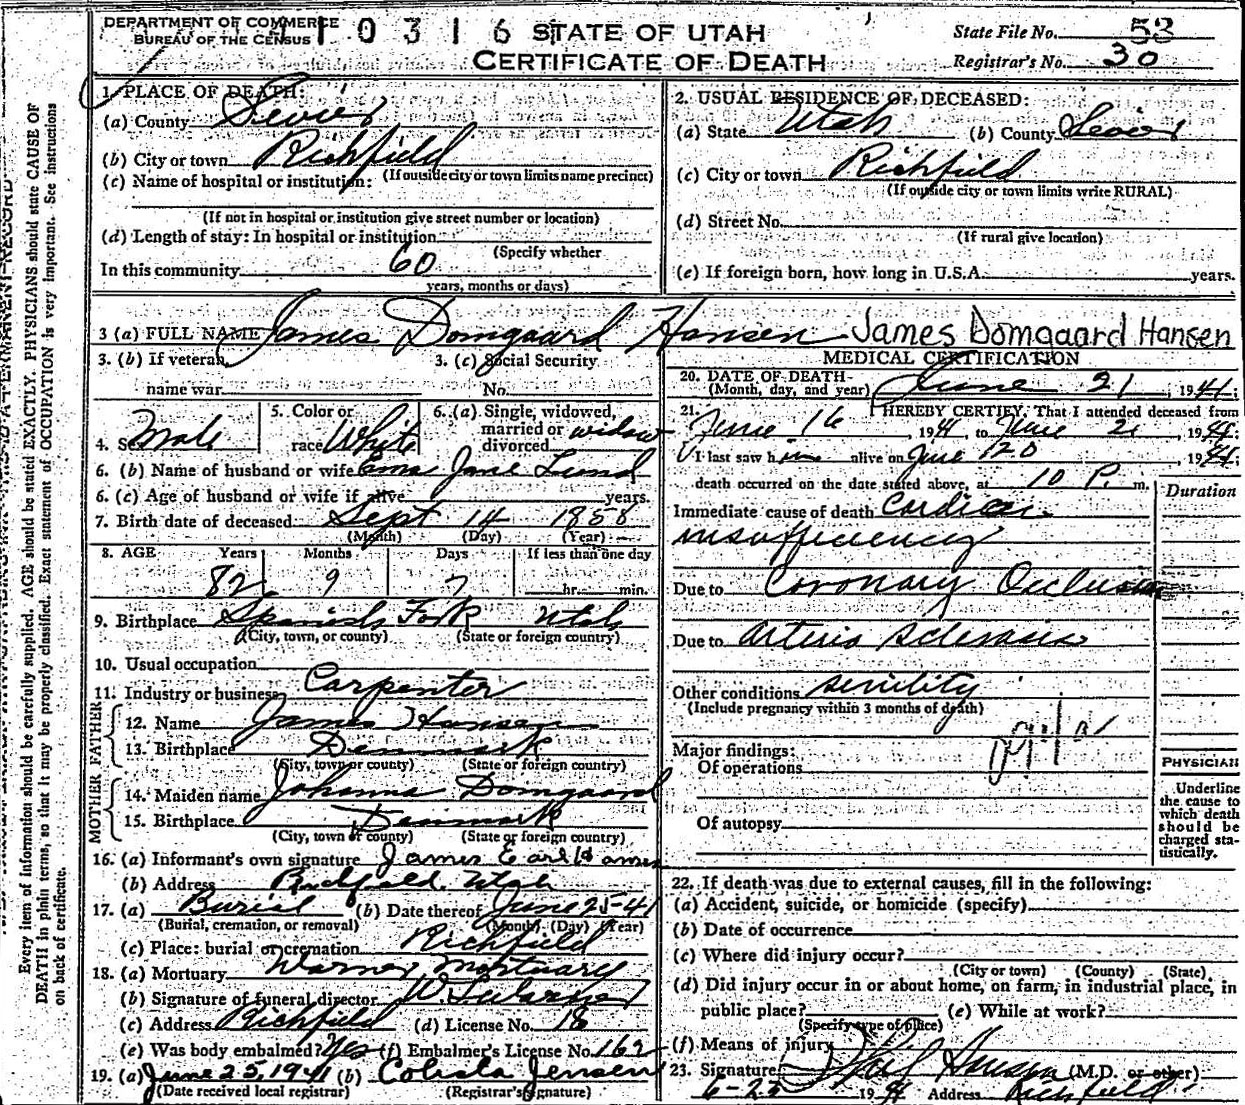 DEPARTMENT OF COMMERCE
BUREAU OF THE CENSUS
10316
STATE OF UTAH
CERTIFICATE OF DEATH
State File No. 53
Registrar's No. 30
Every item of information should be carefully supplied. AGE should be stated EXACTLY. PHYSICIANS should state CAUSE OF
DEATH in plain terms, so that it may be properly classified. Exact statement of OCCUPATION is very important. See instructions
on back of certificate.
1. PLACE OF DEATH:
(a) County Sevier
(b) City or town Richfield
(If outside city or town limits name precinct)
(c) Name of hospital or institution:
(If not in hospital or institution give street number or location)
(d) Length of stay: In hospital or institution
(Specify whether
In this community 60
years, months or days)
2. USUAL RESIDENCE OF DECEASED:
(a) State Utah (b) County Sevier
(c) City or town Richfield
(If outside city or town limits write RURAL)
(d) Street No.
(If rural give location)
(e) If foreign born, how long in U.S.A. years.
3 (a) FULL NAME James Domgaard Hansen James Domgaard Hansen
3. (b) If veteran, 3. (c) Social Security
name war No.
4. Sex Male 5. Color or race White 6. (a) Single, widowed, married or divorced widow
6. (b) Name of husband or wife Jane Lund
6. (c) Age of husband or wife if alive years.
7. Birth date of deceased Sept 14 1858
(Month) (Day) (Year)
8. AGE Years Months Days If less than one day
82 9 7 hr. min.
9. Birthplace Spanish Fork Utah
(City, town, or county) (State or foreign country)
10. Usual occupation
11. Industry or business Carpenter
FATHER
12. Name James Hansen
13. Birthplace Denmark
(City, town or county) (State or foreign country)
MOTHER
14. Maiden name Johanna Domgaard
15. Birthplace Denmark
(City, town or county) (State or foreign country)
16. (a) Informant's own signature James Earl Hansen
(b) Address Richfield, Utah
17. (a) Burial (b) Date thereof June 25-41
(Burial, cremation, or removal) (Month) (Day) (Year)
(c) Place: burial or cremation Richfield
18. (a) Mortuary Warner Mortuary
(b) Signature of funeral director W.
(c) Address Richfield (d) License No. 18
(e) Was body embalmed? Yes (f) Embalmer's License No. 162
19. (a) June 25, 1941 (b) Jensen
(Date received local registrar) (Registrar's signature)
MEDICAL CERTIFICATION
20. DATE OF DEATH
(Month, day, and year) June 21, 1941;
21. I HEREBY CERTIFY, That I attended deceased from
June 16, 1941, to June 21, 1941;
I last saw him alive on June 20, 1941;
death occurred on the date stated above, at 10 P. m.
Duration
Immediate cause of death Cardiac
insufficiency
Due to Coronary Occlusion
Due to Arterio sclerosis
Other conditions senility
(Include pregnancy within 3 months of death)
Major findings:
Of operations
Of autopsy
PHYSICIAN
Underline
the cause to
which death
should be
charged sta-
tistically.
22. If death was due to external causes, fill in the following:
(a) Accident, suicide, or homicide (specify)
(b) Date of occurrence
(c) Where did injury occur?
(City or town) (County) (State)
(d) Did injury occur in or about home, on farm, in industrial place, in
public place? (e) While at work?
(Specify type of place)
(f) Means of injury
23. Signature (M.D. or other)
6-25 1941 Address Richfield